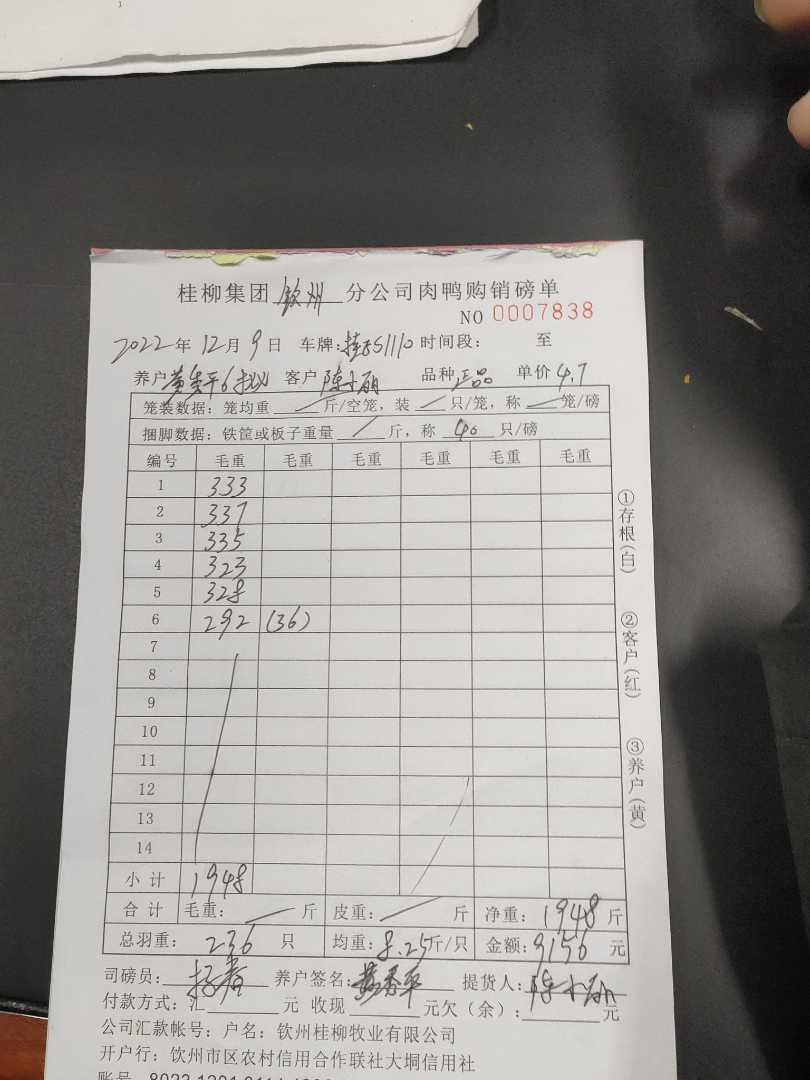 桂柳集团 钦州 分公司肉鸭购销磅单
NO 0007838
2022年 12月 9日 车牌: 时间段: 至
养户 6批 客户 陈小丽 品种 正品 单价 4.7
笼装数据: 笼均重 斤/空笼, 装 只/笼, 称 笼/磅
捆脚数据: 铁筐或板子重量 斤, 称 40 只/磅
编号 毛重 毛重 毛重 毛重 毛重 毛重
1 333
2 337
3 335
4 323
5 328
6 292 (36)
7
8
9
10
11
12
13
14
小计 1948
合计 毛重: 斤 皮重: 斤 净重: 1948 斤
总羽重: 236 只 均重: 8.25 斤/只 金额: 9156 元
司磅员: 养户签名: 提货人: 陈小丽
付款方式: 汇 元 收现 元欠(余): 元
公司汇款帐号: 户名: 钦州桂柳牧业有限公司
开户行: 钦州市区农村信用合作联社大垌信用社
①存根(白)
②客户(红)
③养户(黄)